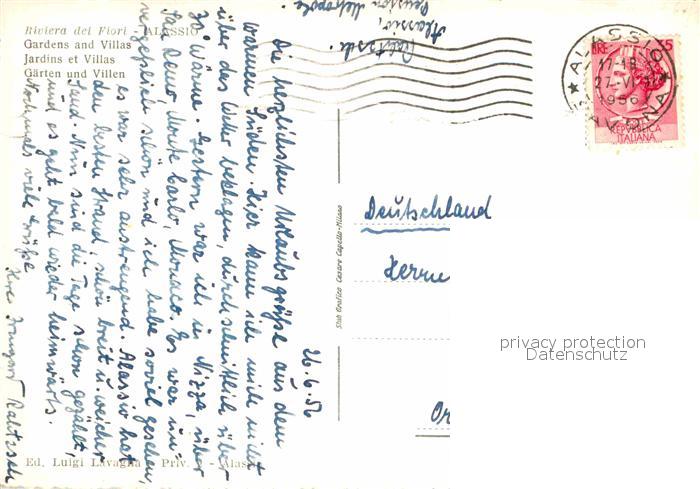 Riviera dei Fiori - ALASSIO
Gardens and Villas
Jardins et Villas
Gärten und Villen
Alassio,
Pension Metropole
26.6.56
Die herzlichsten Urlaubsgrüße aus dem
warmen Süden. Hier kann ich mich nicht
über das Wetter beklagen, durchschnittlich über
30 Wärme. Gestern war ich in Nizza, über
San Remo, Monte Carlo, Monaco. Es war un-
vergesslich schön und ich habe soviel gesehen,
es war sehr anstrengend. Alassio hat
den besten Strand, schön breit u. weicher
Sand. Nun sind die Tage schon gezählt,
und es geht bald wieder heimwärts.
Nochmals viele Grüße
Ihre Irmgard
Ed. Luigi Lavagna - Priv. - Alassio
Stab. Grafico Cesare Capello - Milano
ALASSIO
17-18
27-VI
1956
SAVONA
LIRE 35
REPVBBLICA
ITALIANA
Deutschland
Herrn
privacy protection
Datenschutz
Or